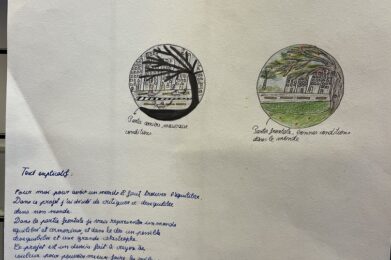 Partie arrière, mauvaises
conditions
Partie frontale, bonnes conditions
dans le monde
Text explicatif:
Pour moi pour avoir un monde il faut trouver l'équilibre.
Dans ce projet j'ai décidé de critiquer le desequilibre
dans mon monde.
Dans la partie frontale je veux representer un monde
equilibré et armonieux, et dans le dos un possible
desequilibre et une grande catastrophe.
Ce projet est un dessin fait à crayon de
couleur pour pouvoir mieux faire les